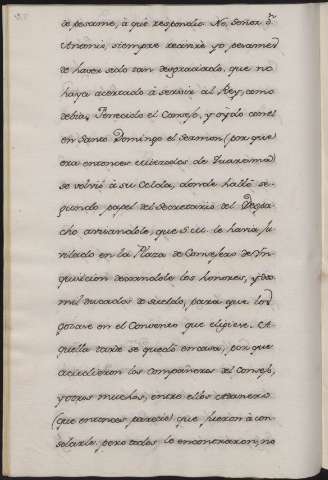 de pesame, à què respondio. No, Señor D.ⁿ
Antonio, siempre recivire yo pesames
de haver sido tan desgraciado, que no
haya acertado à servir al Rey, como
debia. Fenecido el Consejo, y oydo con el
en Santo Domingo el Sermon (por que
era entonces Miercoles de Quaresma)
se volviò à su Celda, donde hallò se-
gundo papel del Secretario del Despa-
cho avisandole, que S. M. le havia Ju-
vilado en la Plaza de Consejero de Yn-
quisicion dexandole los honores, y dos
mil ducados de sueldo, para que los
gozase en el Convento que elijiese. A-
quella tarde se quedò en casa, por que
acudieron los Compañeros del Consejo,
y otros muchos, entre ellos
(que entonces pareciò) que fueron à con-
solarle, pero todos le encontraron, no